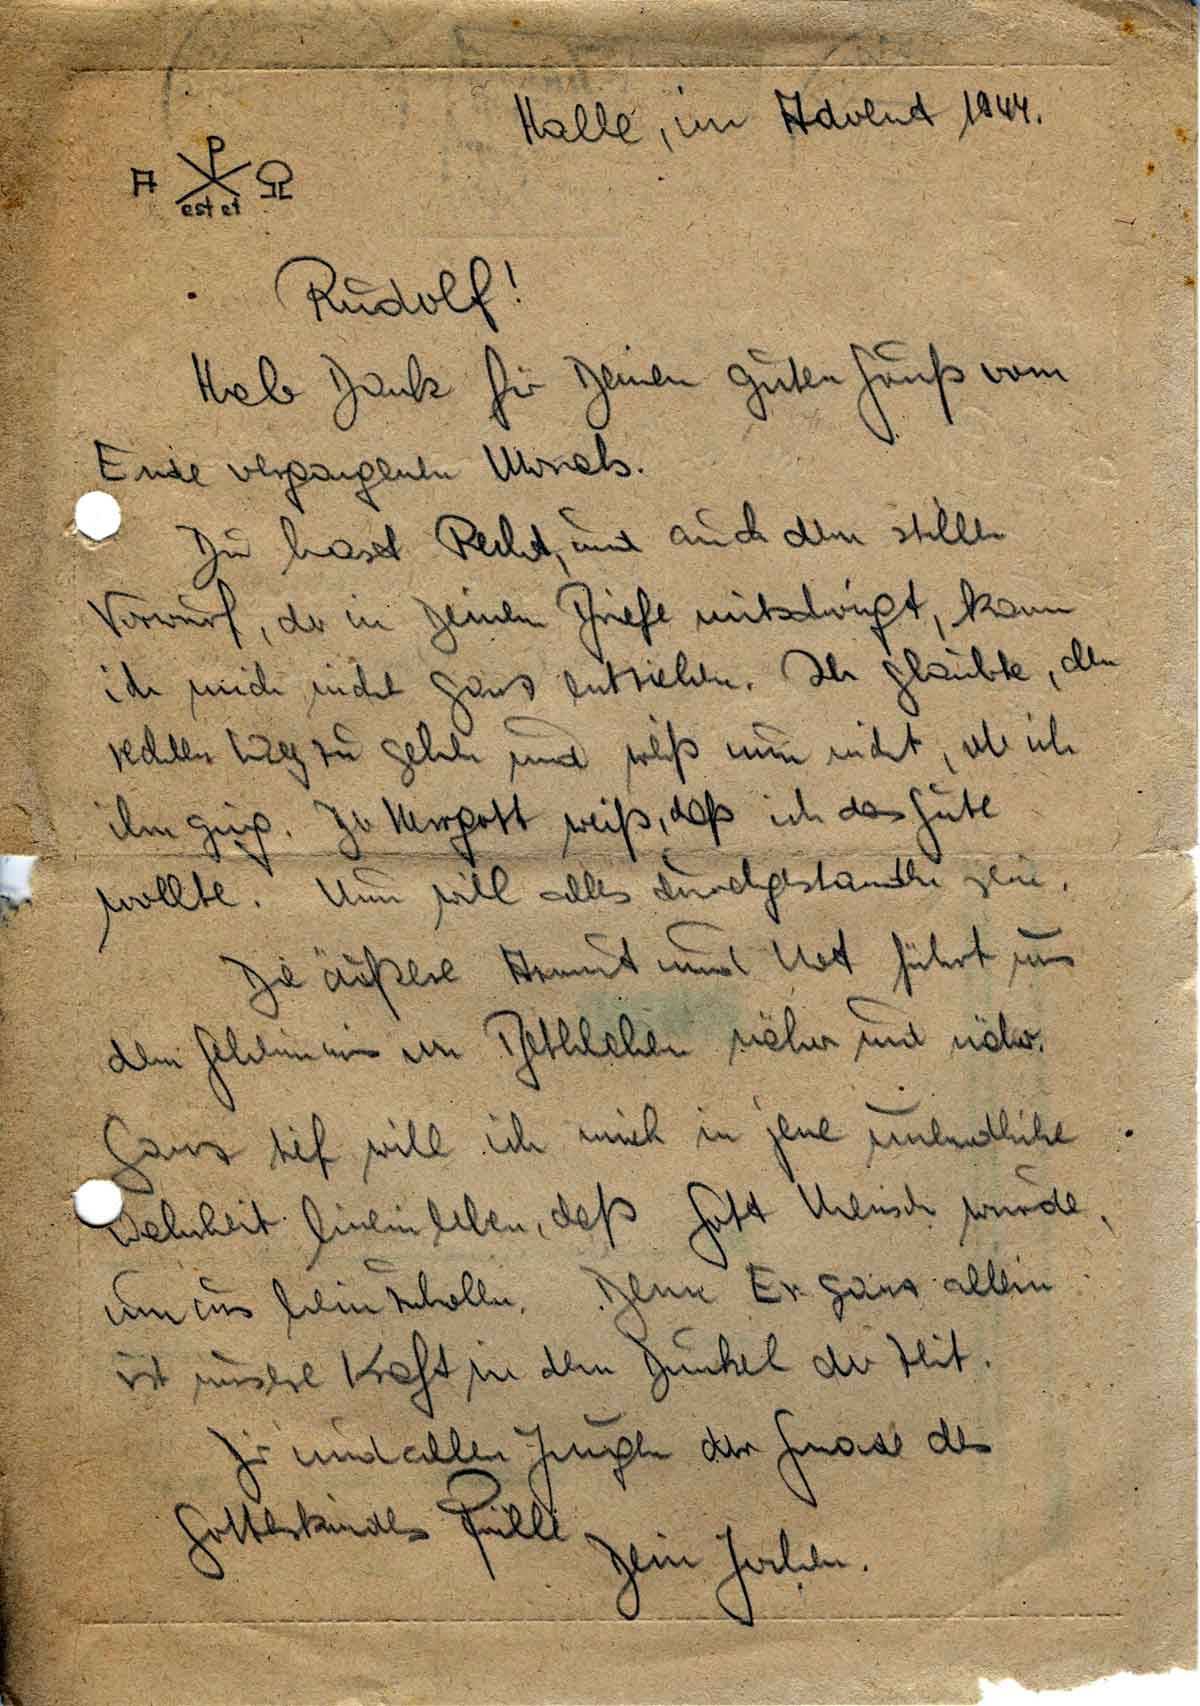 Halle, im Advent 1944.
A P Ω
est et
Rudolf!
Hab Dank für Deinen guten Gruß vom
Ende vergangenen Monats.
Du hast Recht, und auch dem stillen
Vorwurf, der in Deinem Briefe mitschwingt, kann
ich mich nicht ganz entziehen. Ich glaubte, den
rechten Weg zu gehen und weiß nun nicht, ob ich
ihn ging. Der Herrgott weiß, daß ich das Gute
wollte. Nun will alles durchgestanden sein.
Die äußere Armut und Not führt uns
dem Geheimnis von Bethlehem näher und näher.
Ganz tief will ich mich in jene unendliche
Wahrheit hineinleben, daß Gott Mensch wurde,
um uns heimzuholen. Denn Er ganz allein
ist unsere Kraft in dem Dunkel der Zeit.
Dir und allen Jungen der Gnade des
Gotteskindes Fülle
Dein Jochen.